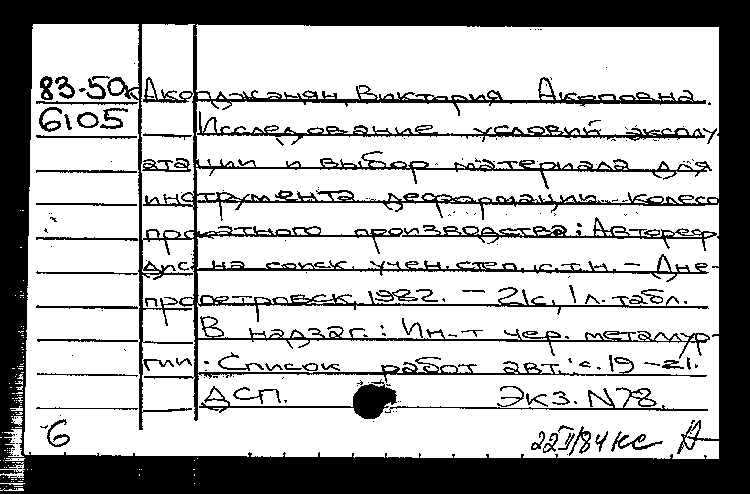 83-50к Акопджанян, Виктория Акоповна.
6105 Исследование условий эксплу-
атации и выбор материала для
инструмента деформации колесо
прокатного производства: Автореф.
дис. на соиск. учен. степ. к.т.н. – Дне-
пропетровск, 1982. – 21с, 1 л. табл.
В надзаг.: Ин-т чер. металлур-
гии. Список работ авт.: с. 19-21.
ДСП. Экз. N78.
6 22 II/84 кс А